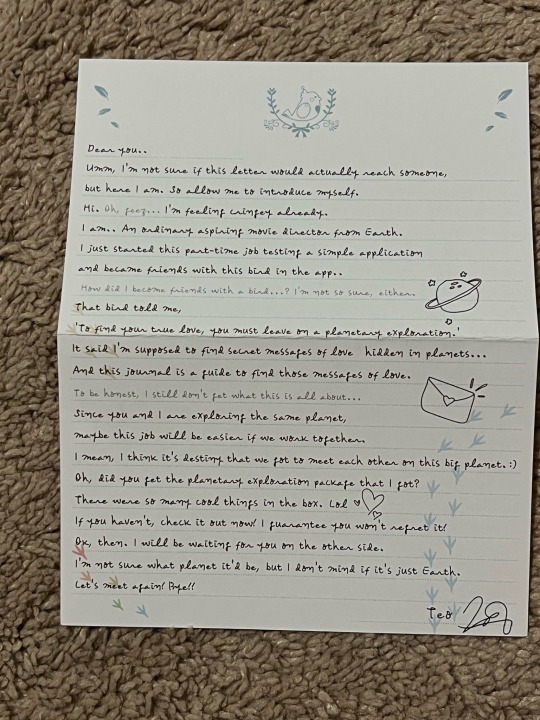 Dear you..
Umm, I'm not sure if this letter would actually reach someone,
but here I am. So allow me to introduce myself.
Hi. Oh, geez... I'm feeling cringey already.
I am.. An ordinary aspiring movie director from Earth.
I just started this part-time job testing a simple application
and became friends with this bird in the app..
How did I become friends with a bird...? I'm not so sure, either.
That bird told me,
'To find your true love, you must leave on a planetary exploration.'
It said I'm supposed to find secret messages of love hidden in planets...
And this journal is a guide to find those messages of love.
To be honest, I still don't get what this is all about...
Since you and I are exploring the same planet,
maybe this job will be easier if we work together.
I mean, I think it's destiny that we got to meet each other on this big planet. :)
Oh, did you get the planetary exploration package that I got?
There were so many cool things in the box. Lol ♥
If you haven't, check it out now! I guarantee you won't regret it!
Ok, then. I will be waiting for you on the other side.
I'm not sure what planet it'd be, but I don't mind if it's just Earth.
Let's meet again! Bye!!
Teo